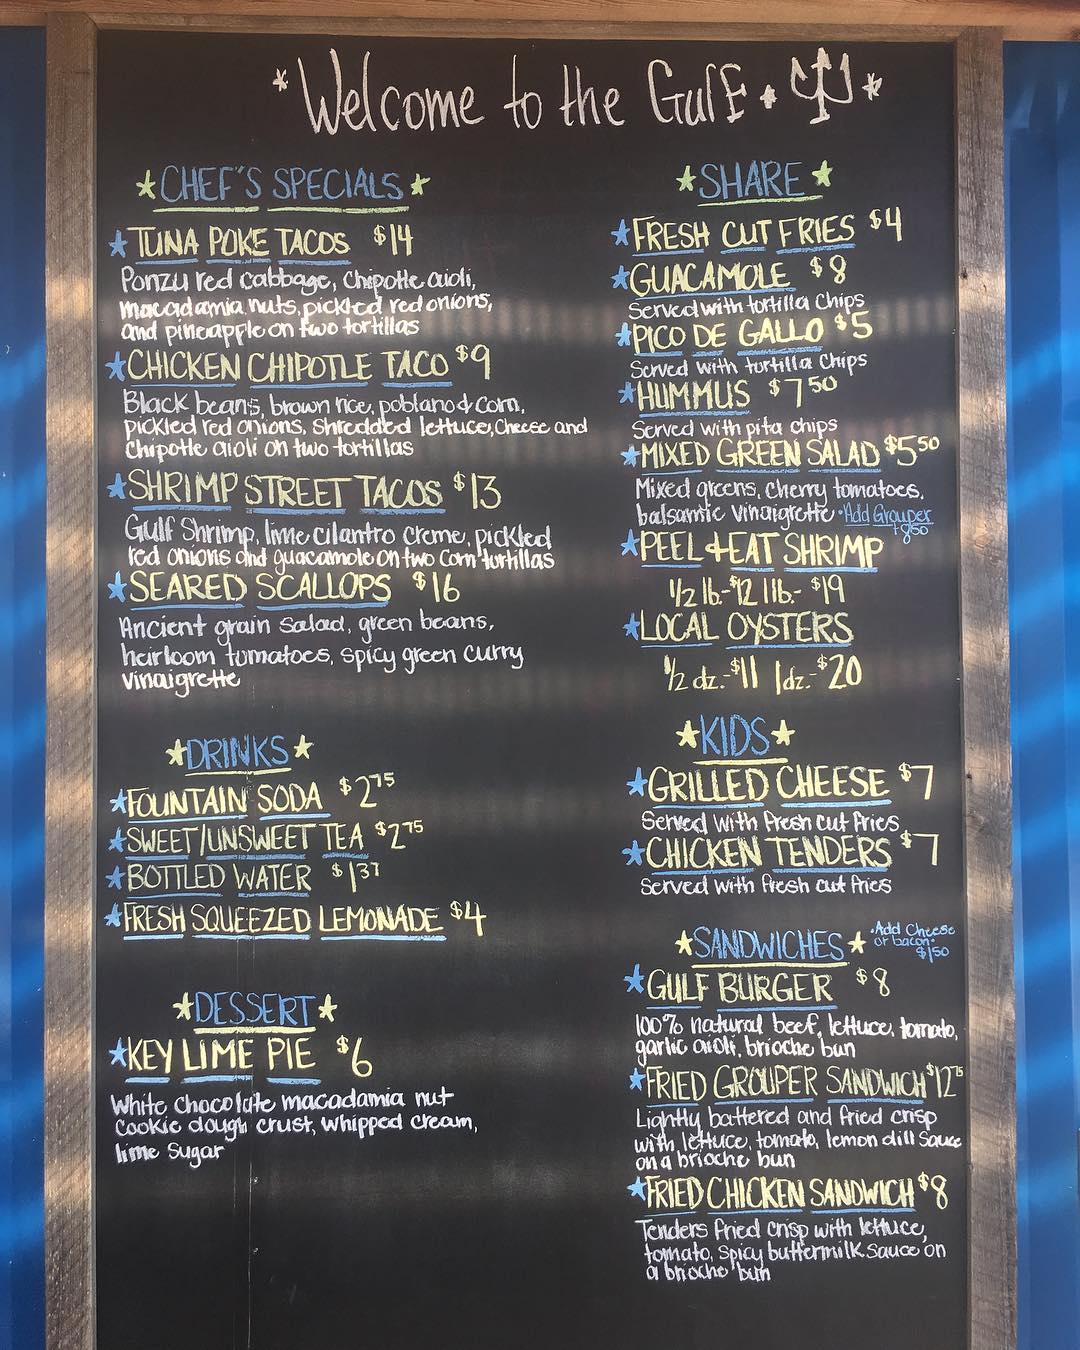 *Welcome to the Gulf • *
*CHEF'S SPECIALS*
*TUNA POKE TACOS $14
Ponzu red cabbage, Chipotle aioli,
macadamia nuts, pickled red onions,
and pineapple on two tortillas
*CHICKEN CHIPOTLE TACO $9
Black beans, brown rice, poblano & corn,
pickled red onions, Shredded lettuce, Cheese and
Chipotle aioli on two tortillas
*SHRIMP STREET TACOS $13
Gulf Shrimp, lime cilantro creme, pickled
red onions and guacamole on two corn tortillas
*SEARED SCALLOPS $16
Ancient grain Salad, green beans,
heirloom tomatoes, spicy green curry
vinaigrette
*DRINKS*
*FOUNTAIN SODA $2.75
*SWEET/UNSWEET TEA $2.75
*BOTTLED WATER $1.37
*FRESH SQUEEZED LEMONADE $4
*DESSERT*
*KEY LIME PIE $6
White Chocolate macadamia nut
Cookie dough crust, whipped cream,
lime Sugar
*SHARE*
*FRESH CUT FRIES $4
*GUACAMOLE $8
Served with tortilla chips
*PICO DE GALLO $5
Served with tortilla chips
*HUMMUS $7.50
Served with pita chips
*MIXED GREEN SALAD $5.50
Mixed greens, Cherry tomatoes,
balsamic vinaigrette •Add Grouper
+8.50
*PEEL & EAT SHRIMP
1/2 lb.-$12 1 lb.- $19
*LOCAL OYSTERS
1/2 dz.-$11 1dz.-$20
*KIDS*
*GRILLED CHEESE $7
Served with fresh cut fries
*CHICKEN TENDERS $7
Served with fresh cut fries
*SANDWICHES* •Add Cheese
or bacon•
$1.50
*GULF BURGER $8
100% natural beef, lettuce, tomato,
garlic aioli, brioche bun
*FRIED GROUPER SANDWICH $12.75
Lightly battered and fried crisp
with lettuce, tomato, lemon dill sauce
on a brioche bun
*FRIED CHICKEN SANDWICH $8
Tenders fried crisp with lettuce,
tomato, spicy buttermilk sauce on
a brioche bun